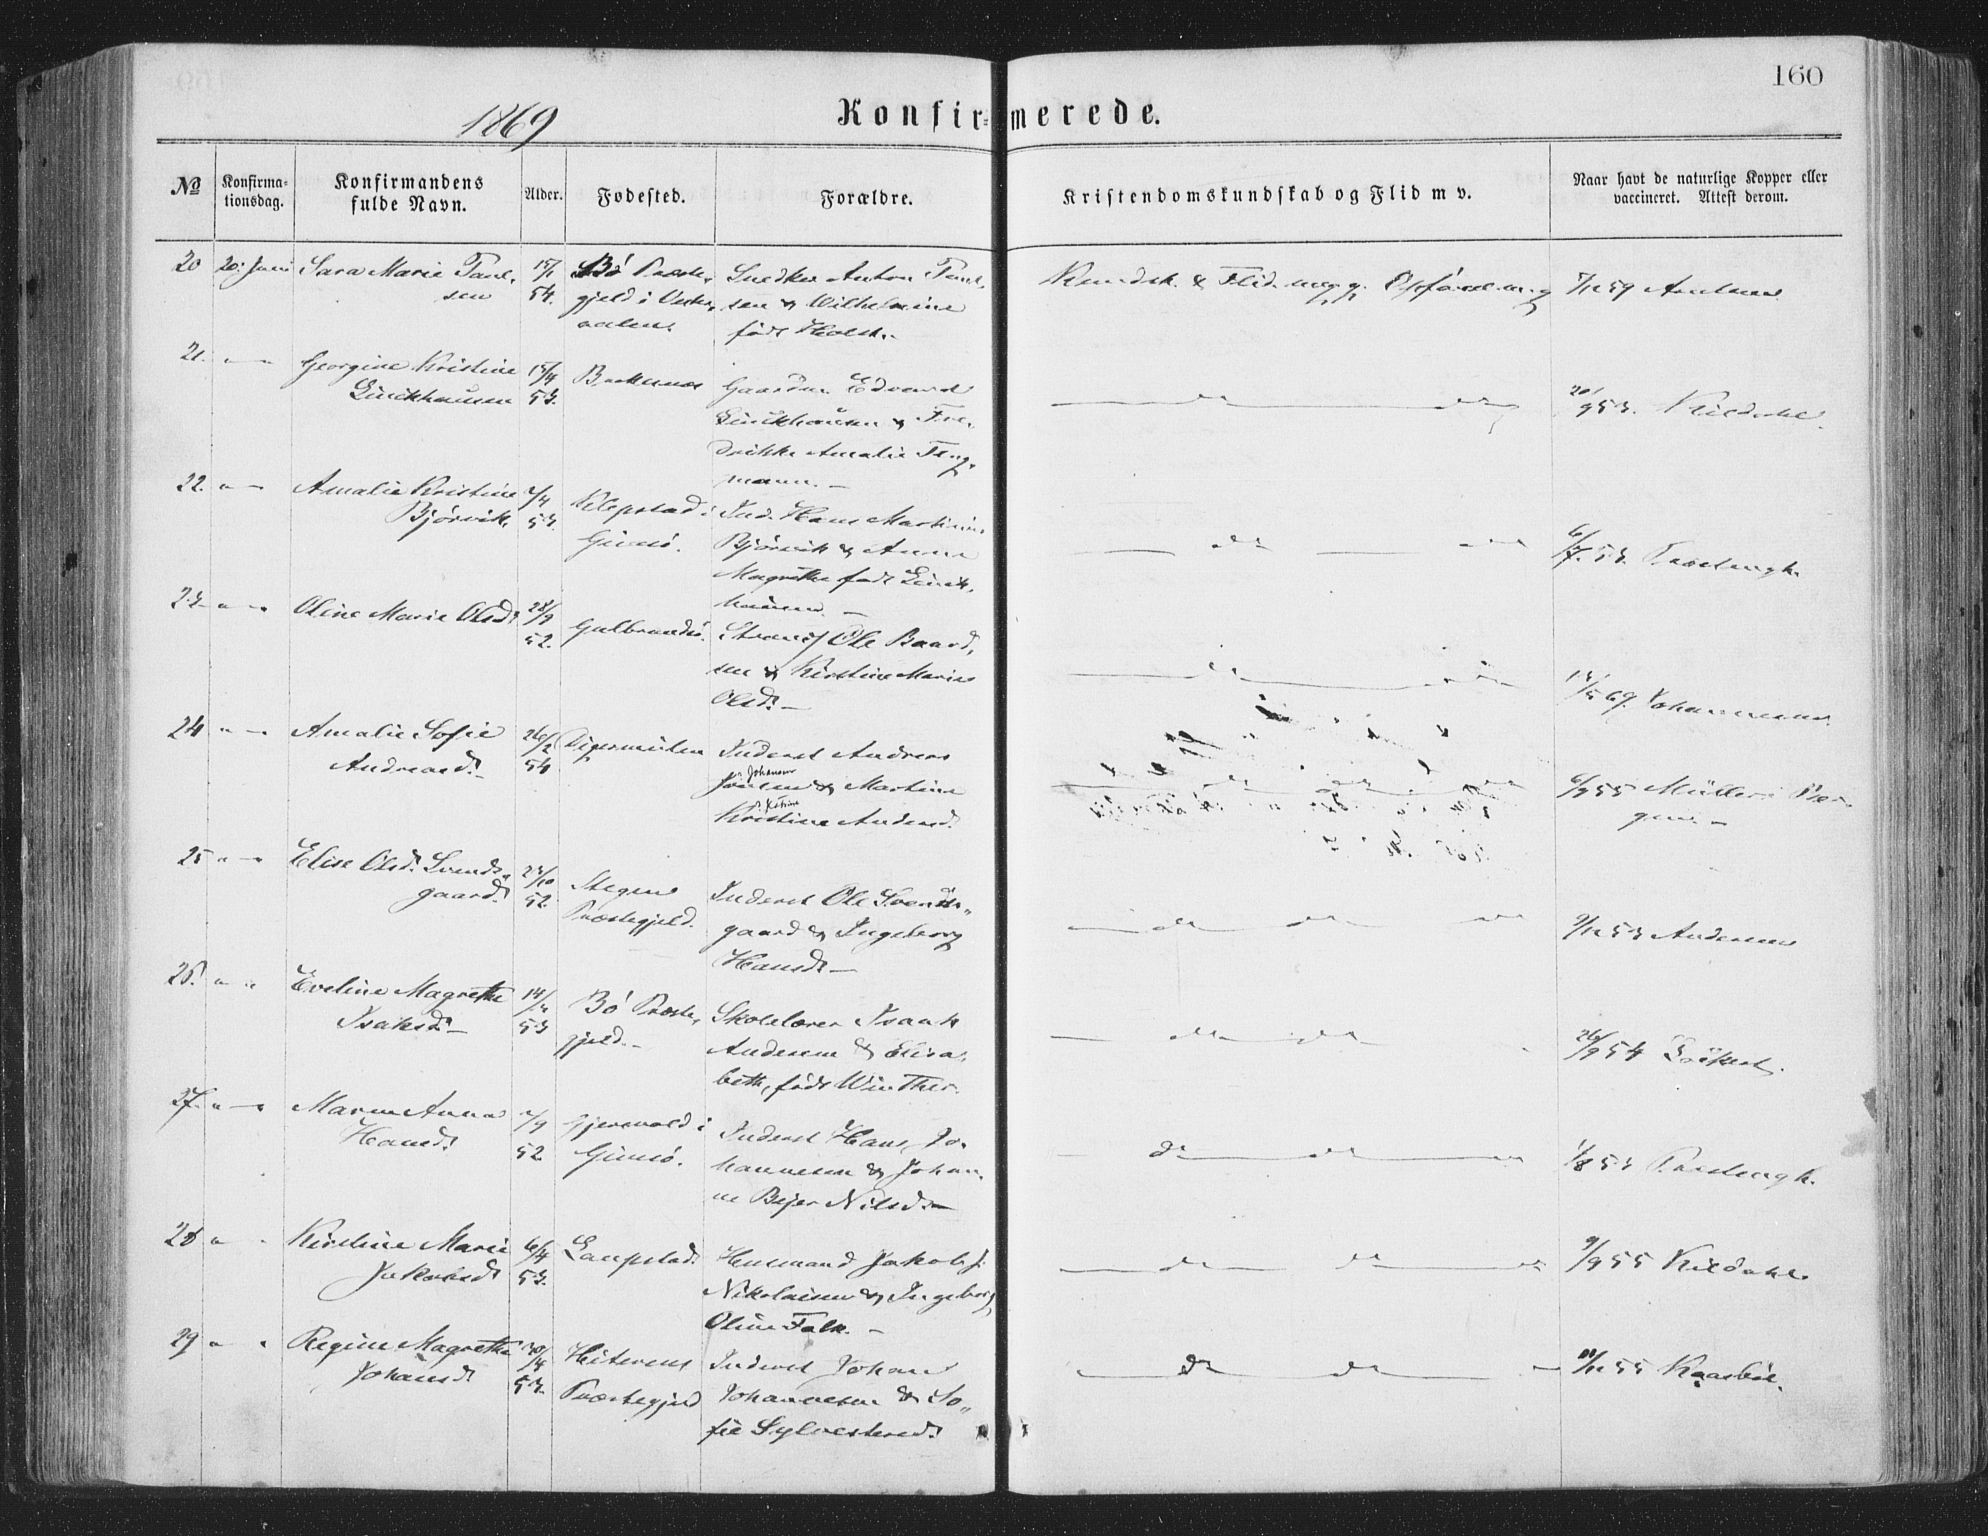 160
1869
Konfirmerede.
№
Konfirma-
tionsdag.
Konfirmandens
fulde Navn.
Alder.
Fødested.
Forældre.
Kristendomskundskab og Flid m v.
Naar havt de naturlige Kopper eller
vaccineret. Attest derom.
20 20. Juni Sara Marie Paul-
sen
15/1
54.
Bø Præste-
gjeld i Vester-
aalen.
Snedker Anton Paul-
sen & Wilhelmine
født Holst.
Kundsk. & Flid meg. g. Opførsel m. g
7/12 59
21. Georgine Kristine
Quickhausen
15/4
53.
Gaardm. Edvard
Quickhausen & Fre-
drikke Amalie Feng-
mann. -
20/9 53. Kildahl.
22. Amalie Kristine
Bjørvik.
7/4
53.
Klepstad i
Gimsø.
Ind. Hans Martinius
Bjørvik & Anne
Magrethe født Quick-
hausen. -
6/7. 53.
23. Oline Marie Olsd.
28/9
52.
Gulbrandsø.
Strands. Ole Baard-
sen & Kirstine Marie
Olsd. -
24 Amalie Sofie
Andreasd. -
26/2
54
Digermulen
Inderst Andreas
Johansen
Jonsen & Martine
Petrine
Kristine Andersd.
6/9 55 Müller i Ber-
gen -
25 Elise Olsd. Svends-
gaard.
23/10
52.
Stegens
Præstegjeld.
Inderst Ole Svends-
gaard & Ingeborg
Hansd. -
9/12 53 Andersen
26. Eveline Magrethe
Isaksd. -
53
Bø Præste-
gjeld. -
Skolelærer Isaak
Andersen & Elisa-
beth, født Winther.
26/9 54
27. Maren Anna
Hansd.
52
Gjersvold i
Gimsø.
Inderst Hans Jo-
hannesen & Johan-
ne Bejer Nilsd. -
1/8 53
28 Kirstine Marie
Jakobsd.
6/4
53.
Laupstad.
Husmand Jakob J.
Nikolaisen & Ingeborg
Oline Falk. -
9/9 55 Kildahl.
29 Regine Magrethe
Johansd.
30/4
53.
Hiterens
Præstegjeld
Inderst Johan
Johannesen & So-
fie Sylvestersd.